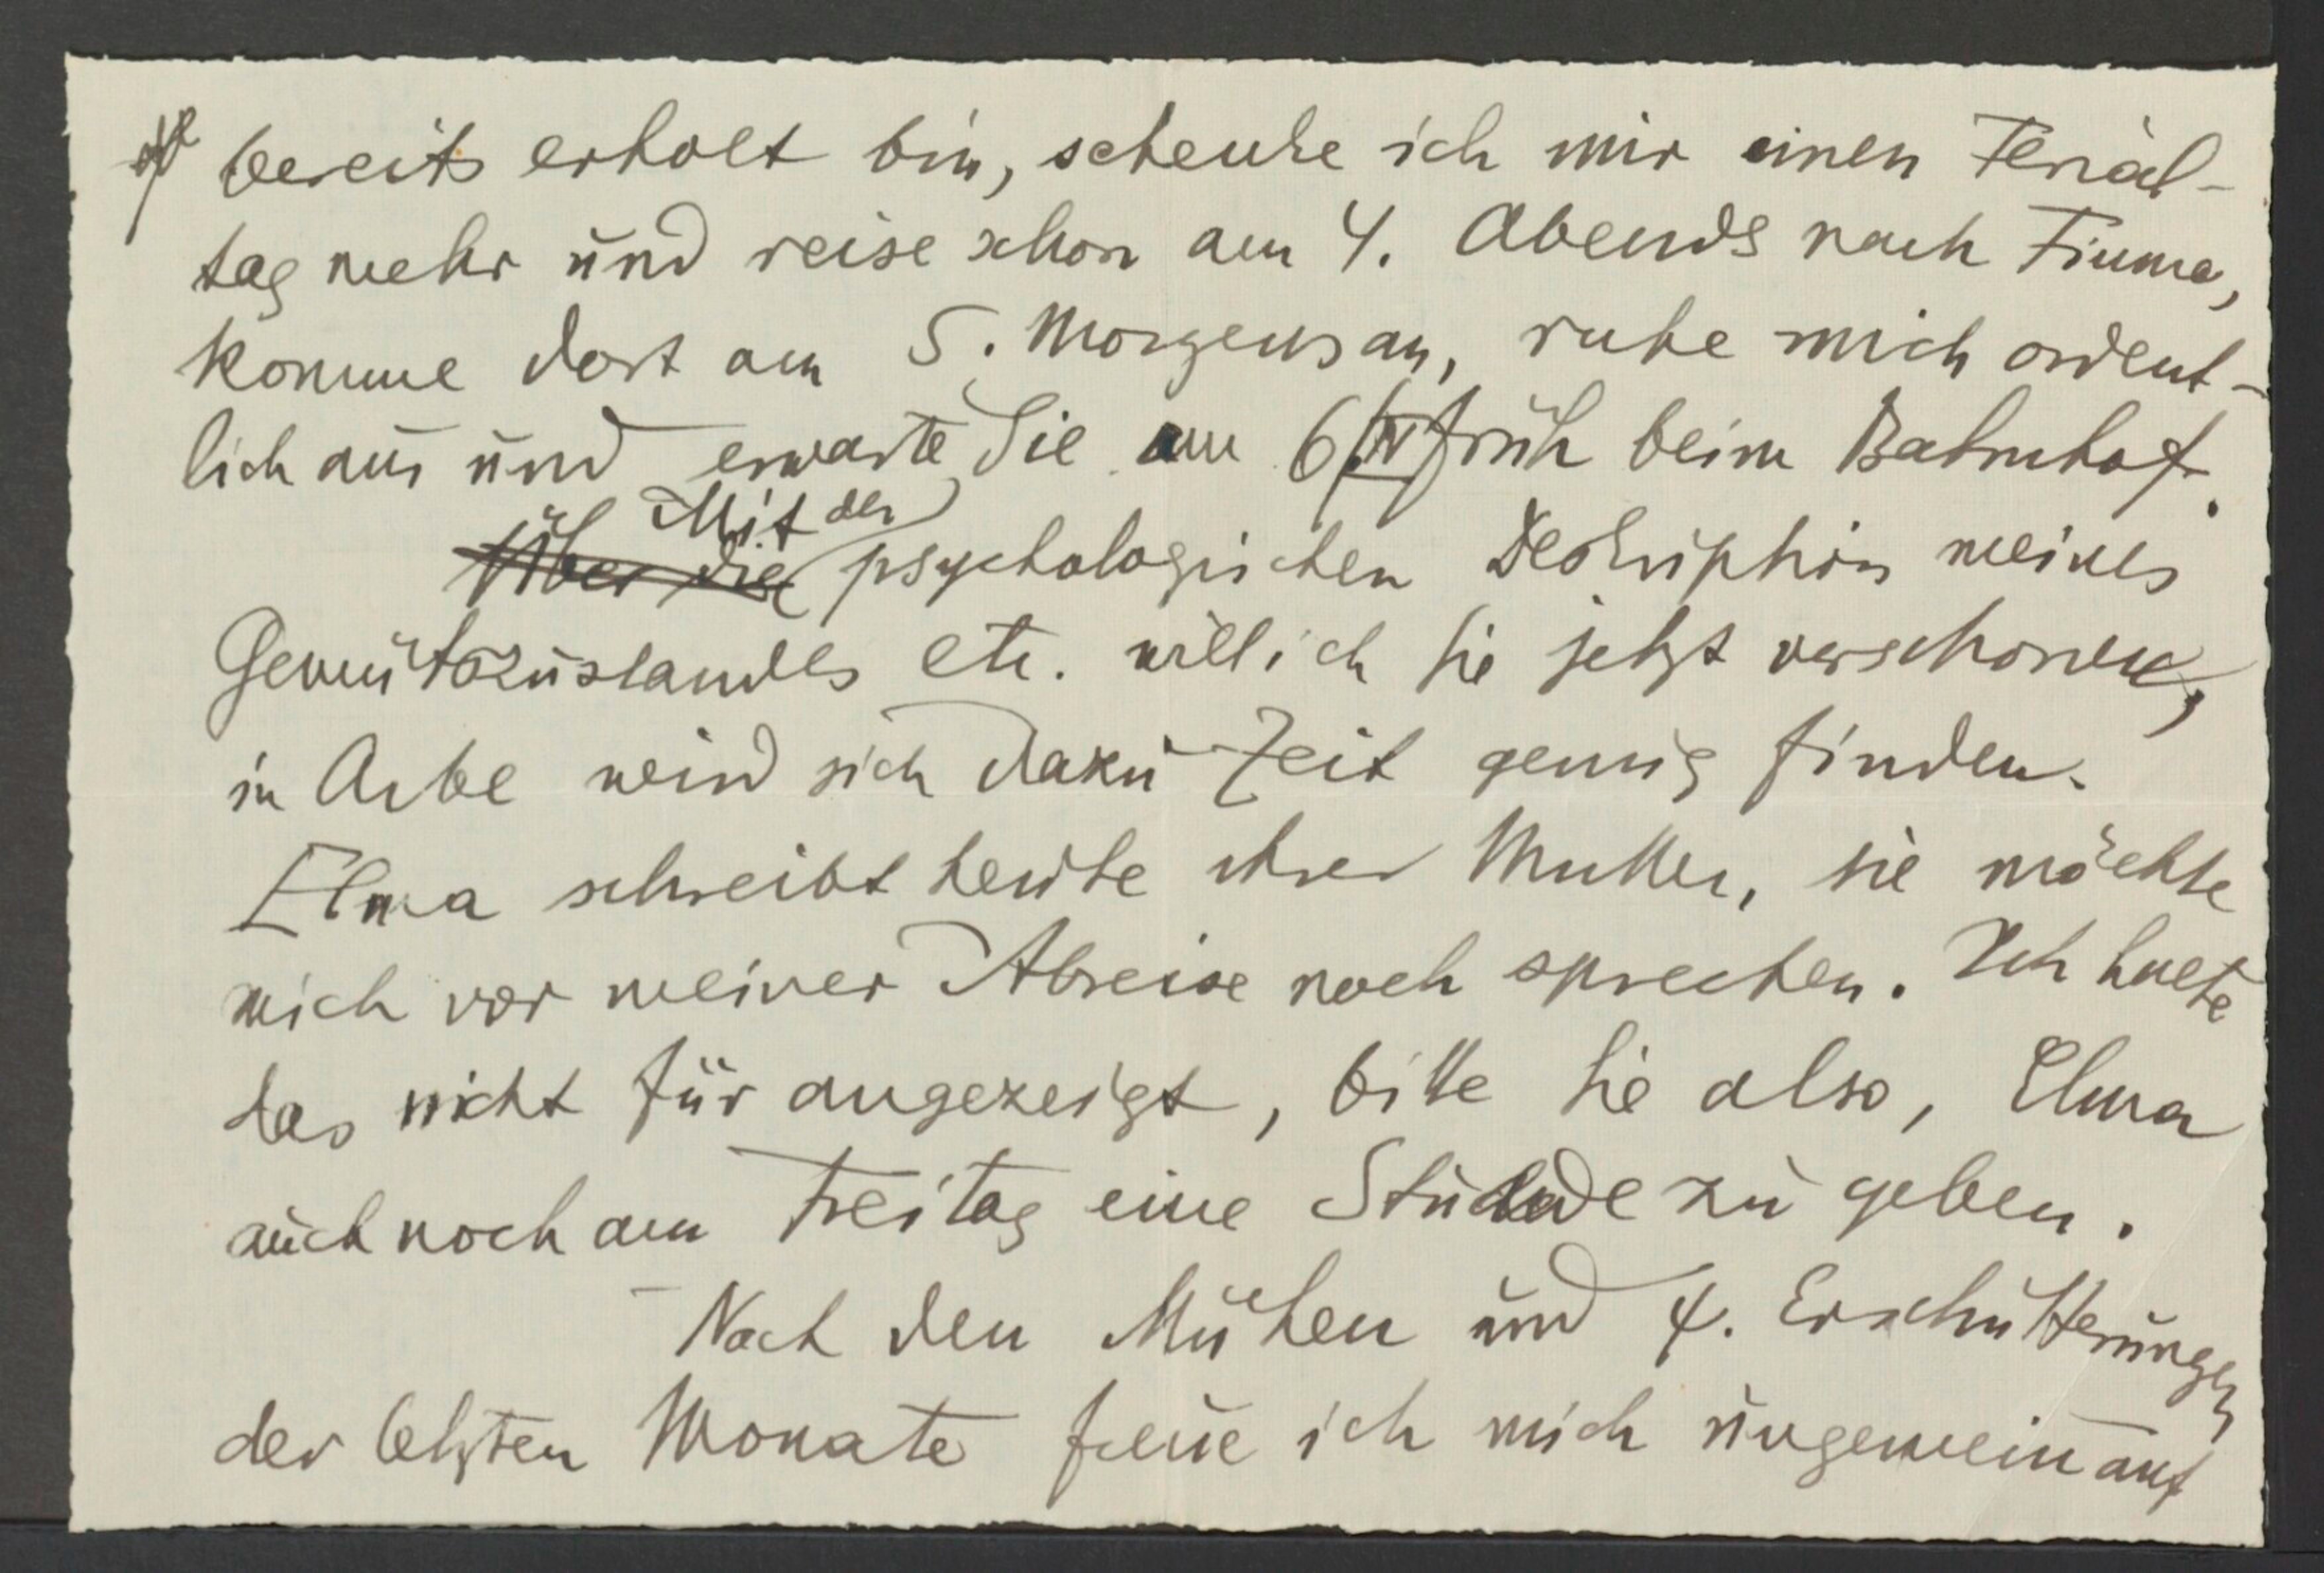 bereits erholt bin, schenke ich mir einen Ferial-
tag mehr und reise schon am 4. Abends nach Fiume,
komme dort am 5. Morgens an, ruhe mich ordent-
lich aus und erwarte Sie am 6/IV früh beim Bahnhof.
Mit der
Über die psychologischen Deskription meines
Gemütszustandes etc. will ich Sie jetzt verschonen,
in Arbe wird sich dazu Zeit genug finden.
Elma schreibt heute ihrer Mutter, sie möchte
mich vor meiner Abreise noch sprechen. Ich halte
das nicht für angezeigt, bitte Sie also, Elma
auch noch am Freitag eine Stunde zu geben.
Nach den Mühen und Erschütterungen
der letzten Monate freue ich mich ungemein auf